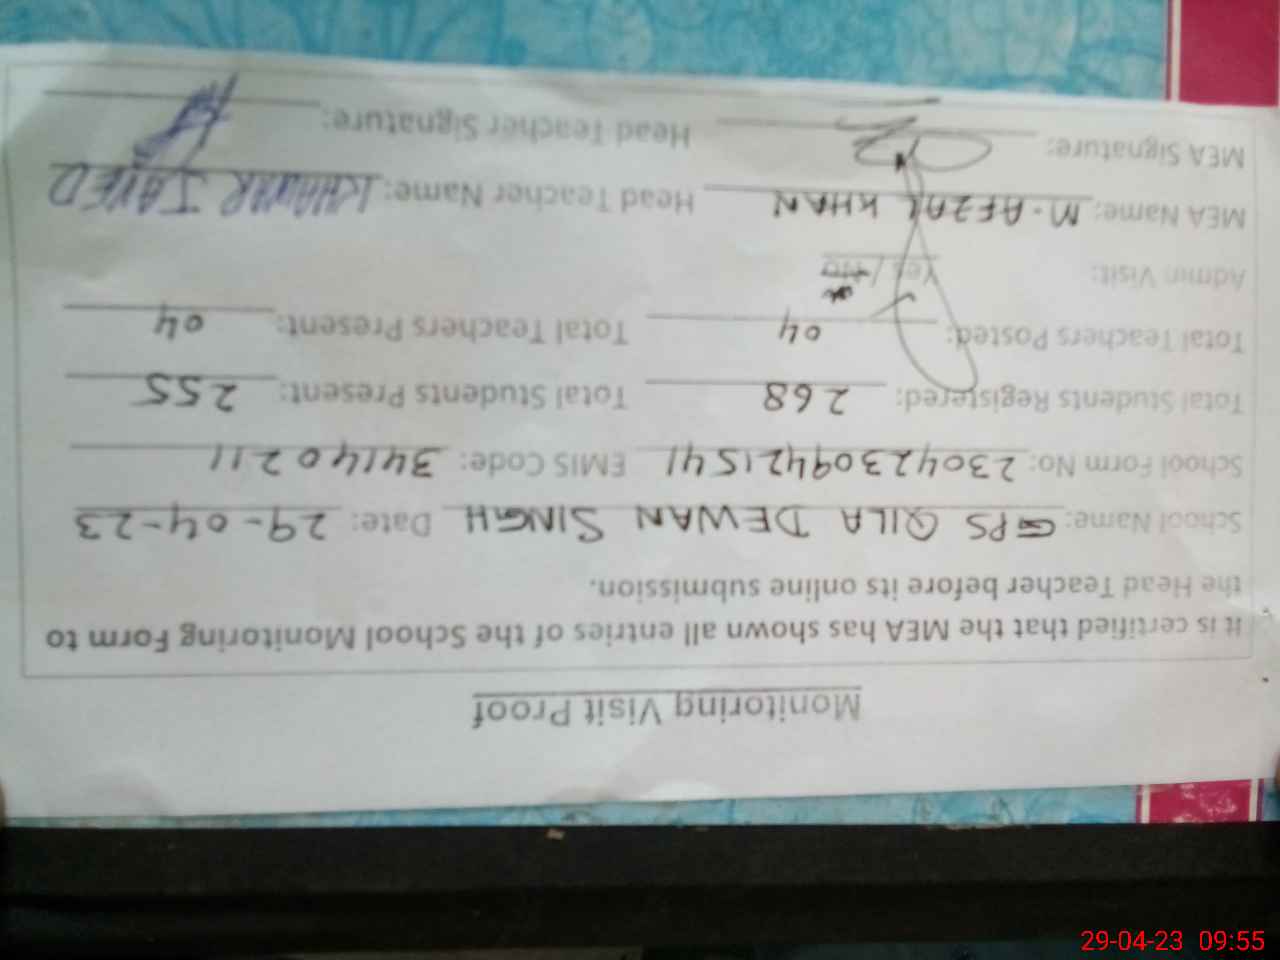 Monitoring Visit Proof
It is certified that the MEA has shown all entries of the School Monitoring Form to
the Head Teacher before its online submission.
School Name: GPS QILA DEWAN SINGH Date: 29-04-23
School Form No: 23042309421541 EMIS Code: 34140211
Total Students Registered: 268 Total Students Present: 255
Total Teachers Posted: 04 Total Teachers Present: 04
Admin Visit: Yes / No
MEA Name: M. AFZAL KHAN Head Teacher Name: KHAWAR JAVED
MEA Signature: Head Teacher Signature:
29-04-23 09:55